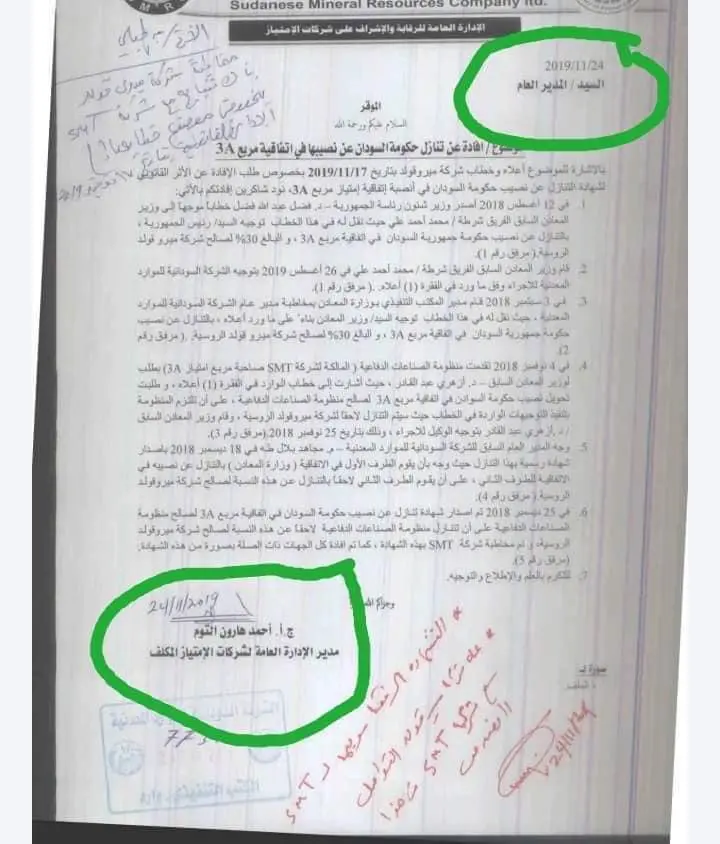 Sudanese Mineral Resources Company ltd.
الإدارة العامة للرقابة والإشراف على شركات الإمتياز
2019/11/24
السيد / المدير العام
الموقر
السلام عليكم ورحمة الله
الموضوع / افادة عن تنازل حكومة السودان عن نصيبها في اتفاقية مربع 3A
بالاشارة للموضوع أعلاه وخطاب شركة ميروقولد بتاريخ 2019/11/17 بخصوص طلب الإفادة عن الأثر القانوني
لشهادة التنازل عن نصيب حكومة السودان في أنصبة إتفاقية إمتياز مربع 3A، نود شاكرين إفادتكم بالآتي:
1. في 12 أغسطس 2018 أصدر وزير شئون رئاسة الجمهورية – د. فضل عبد الله فضل خطابا موجها إلى وزير
المعادن السابق الفريق شرطة / محمد أحمد علي حيث نقل له في هذا الخطاب توجيه السيد/ رئيس الجمهورية ،
بالتنازل عن نصيب حكومة جمهورية السودان في اتفاقية مربع 3A ، و البالغ 30% لصالح شركة ميرو قولد
الروسية.( مرفق رقم 1).
2. قام وزير المعادن السابق الفريق شرطة / محمد أحمد علي في 26 أغسطس 2019 بتوجيه الشركة السودانية للموارد
المعدنية للاجراء وفق ما ورد في الفقرة (1) أعلاه . ( مرفق رقم 1).
3. في 3 سبتمبر 2018 قام مدير المكتب التنفيذي بوزارة المعادن بمخاطبة مدير عام الشركة السودانية للموارد
المعدنية ، حيث نقل له في هذا الخطاب توجيه السيد/ وزير المعادن بناء على ما ورد أعلاه ، بالتنازل عن نصيب
حكومة جمهورية السودان في اتفاقية مربع 3A ، و البالغ 30% لصالح شركة ميرو قولد الروسية. ( مرفق رقم
2).
4. في 4 نوفمبر 2018 تقدمت منظومة الصناعات الدفاعية ( المالكة لشركة SMT صاحبة مربع امتياز 3A) بطلب
لوزير المعادن السابق – د. أزهري عبد القادر ، حيث أشارت إلى خطاب الوارد في الفقرة (1) أعلاه ، و طلبت
تحويل نصيب حكومة السودان في اتفاقية مربع 3A لصالح منظومة الصناعات الدفاعية ، على أن تلتزم المنظومة
بتنفيذ التوجيهات الواردة في الخطاب حيث سيتم التنازل لاحقا لشركة ميروقولد الروسية ، وقام وزير المعادن السابق
/ د .أزهري عبد القادر بتوجيه الوكيل للاجراء ، وذلك بتاريخ 25 نوفمبر 2018.(مرفق رقم 3).
5. وجه المدير العام السابق للشركة السودانية للموارد المعدنية – م. مجاهد بلال طه في 18 ديسمبر 2018 باصدار
شهادة رسمية بهذا التنازل حيث وجه بأن يقوم الطرف الأول في الاتفاقية ( وزارة المعادن ) بالتنازل عن نصيبه في
الاتفاقية للطرف الثاني ، على أن يقوم الطرف الثاني لاحقا بالتنازل عن هذه النسبة لصالح شركة ميروقولد
الروسية.( مرفق رقم 4).
6. في 25 ديسمبر 2018 تم اصدار شهادة تنازل عن نصيب حكومة السودان في اتفاقية مربع 3A لصالح منظومة
الصناعات الدفاعية على أن تتنازل منظومة الصناعات الدفاعية لاحقا عن هذه النسبة لصالح شركة ميروقولد
الروسية، و تم مخاطبة شركة SMT بهذه الشهادة ، كما تم افادة كل الجهات ذات الصلة بصورة من هذه الشهادة.
(مرفق رقم 5).
7. للتكرم بالعلم والإطلاع والتوجيه.
وجزاكم الله
24/11/2019
ج.أ. أحمد هارون التوم
مدير الإدارة العامة لشركات الإمتياز المكلف
صورة لـ
- الملف.
SMT
24/11/2019